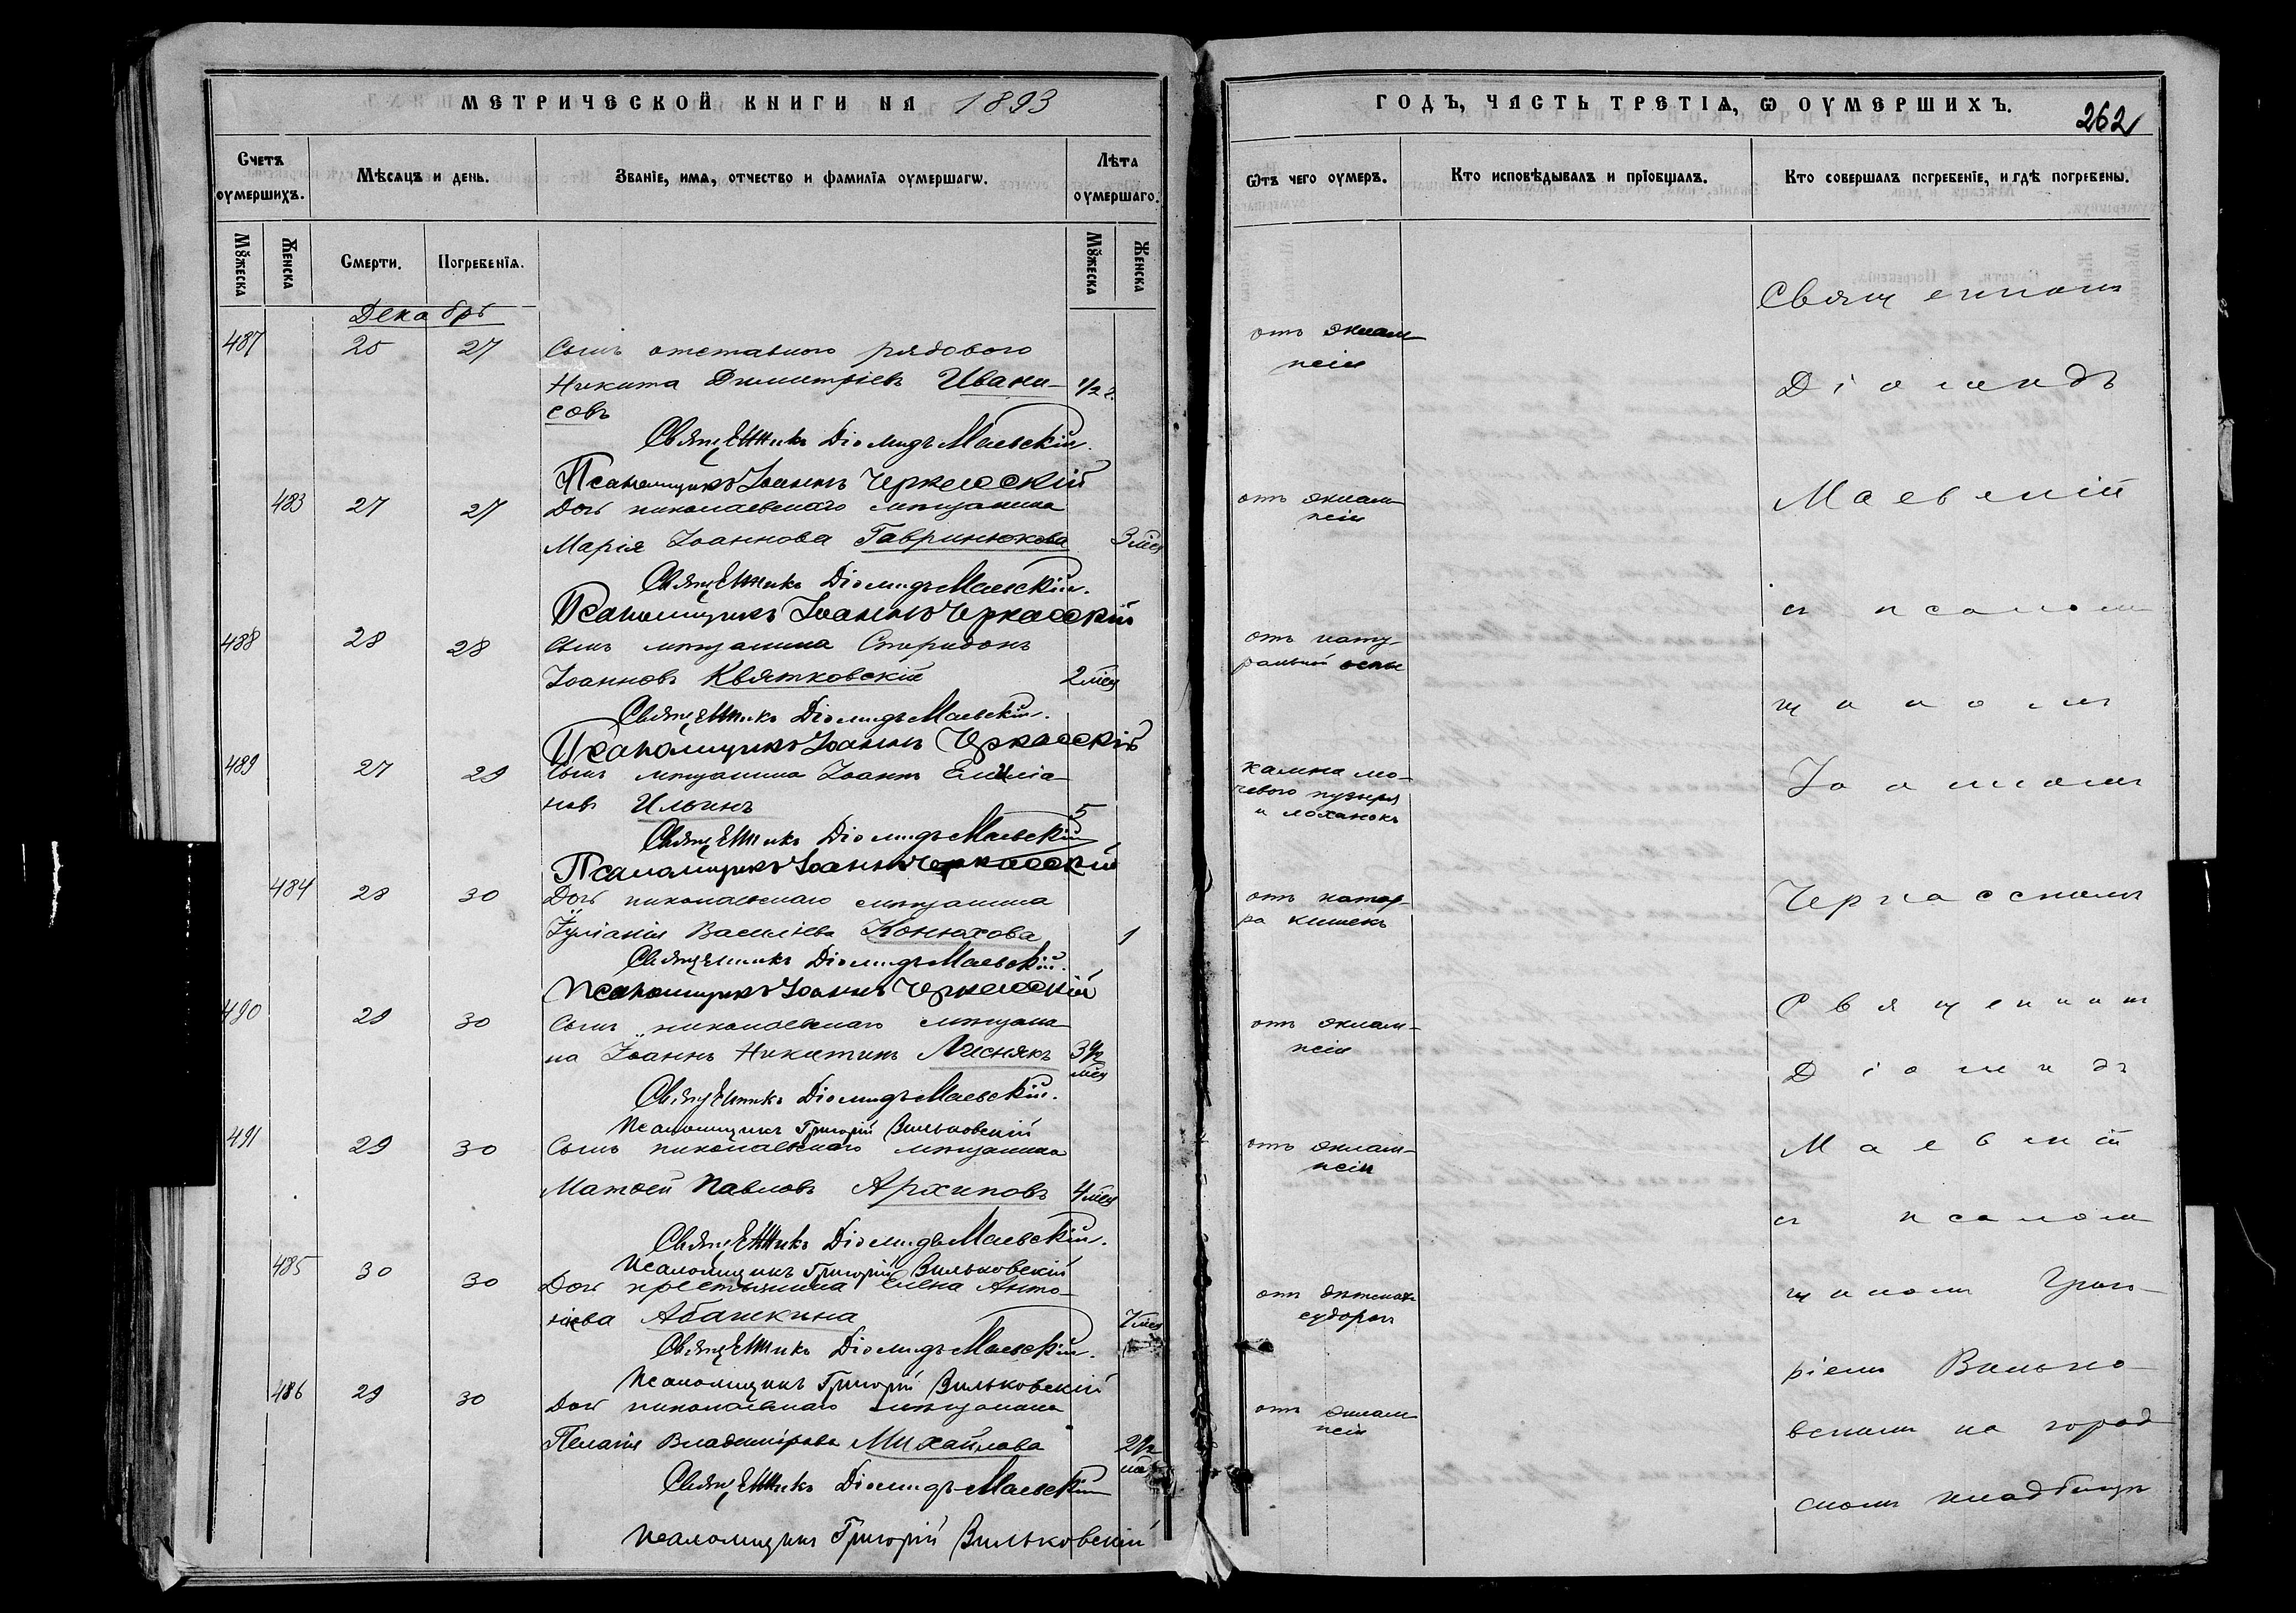 МЕТРИЧЕСКОЙ КНИГИ НА 1893
Счетъ оумершихъ.
Мѣсяцъ и день.
Званіе, имя, отчество и фамилія оумершагѡ.
Лѣта оумершаго.
Мꙋжеска
Женска
Смерти.
Погребенїя.
Мꙋжеска
Женска
Декабрь
487 25 27 Сынъ отставного рядового
Никита Димитріевъ Ивани- 1/2 г.
совъ
Священникъ Діомидъ Маевскій.
Псаломщикъ Іоаннъ Черкасскій
483 27 27 Дочь николаевскаго мѣщанина
Марія Іоаннова Гавринюкова 3 мѣс
Священникъ Діомидъ Маевскій.
Псаломщикъ Іоаннъ Черкасскій
488 28 28 Сынъ мѣщанина Спиридонъ
Іоанновъ Квятковскій 2 мѣс
Священникъ Діомидъ Маевскій.
Псаломщикъ Іоаннъ Черкасскій
489 27 29 Сынъ мѣщанина Іоаннъ Емиліа-
новъ Ильинъ 5
Священникъ Діомидъ Маевскій
Псаломщикъ Іоаннъ Черкасскій
484 28 30 Дочь николаевскаго мѣщанина
Іуліанія Василіева Конюхова 1
Священникъ Діомидъ Маевскій.
Псаломщикъ Іоаннъ Черкасскій
490 29 30 Сынъ николаевскаго мѣщани-
на Іоаннъ Никитинъ Лиснякъ 3 1/2
мѣс
Священникъ Діомидъ Маевскій.
Псаломщикъ Григорій Вильковскій
491 29 30 Сынъ николаевскаго мѣщанина
Матѳей Павловъ Архиповъ 4 мѣс
Священникъ Діомидъ Маевскій.
Псаломщикъ Григорій Вильковскій
485 30 30 Дочь крестьянина Елена Анто-
ніева Абашкина 7 мѣс
Священникъ Діомидъ Маевскій.
Псаломщикъ Григорій Вильковскій
486 29 30 Дочь николаевскаго мѣщанина
Пелагія Владимірова Михайлова 2 1/2
Священникъ Діомидъ Маевскій
Псаломщикъ Григорій Вильковскій
ГОДЪ, ЧАСТЬ ТРЕТІѦ, Ѡ ОУМЕРШИХЪ.
262
Ѿтъ чего оумеръ.
Кто исповѣдывалъ и прїобщалъ.
Кто совершалъ погребенїе, и гдѣ погребены.
отъ эклам-
псіи
отъ эклам-
псіи
отъ нату-
ральной оспы
камня мо-
чевого пузыря
и лоханокъ
отъ катар-
ра кишекъ
отъ эклам-
псіи
отъ эклам-
псіи
отъ дѣтскихъ
судорогъ
отъ эклам-
псіи
Священникъ
Діомидъ
Маевскій
съ псалом-
щикомъ
Іоанномъ
Черкасскимъ
Священникъ
Діомидъ
Маевскій
съ псалом-
щикомъ Григо-
ріемъ Вилько-
вскимъ на город-
скомъ кладбищѣ